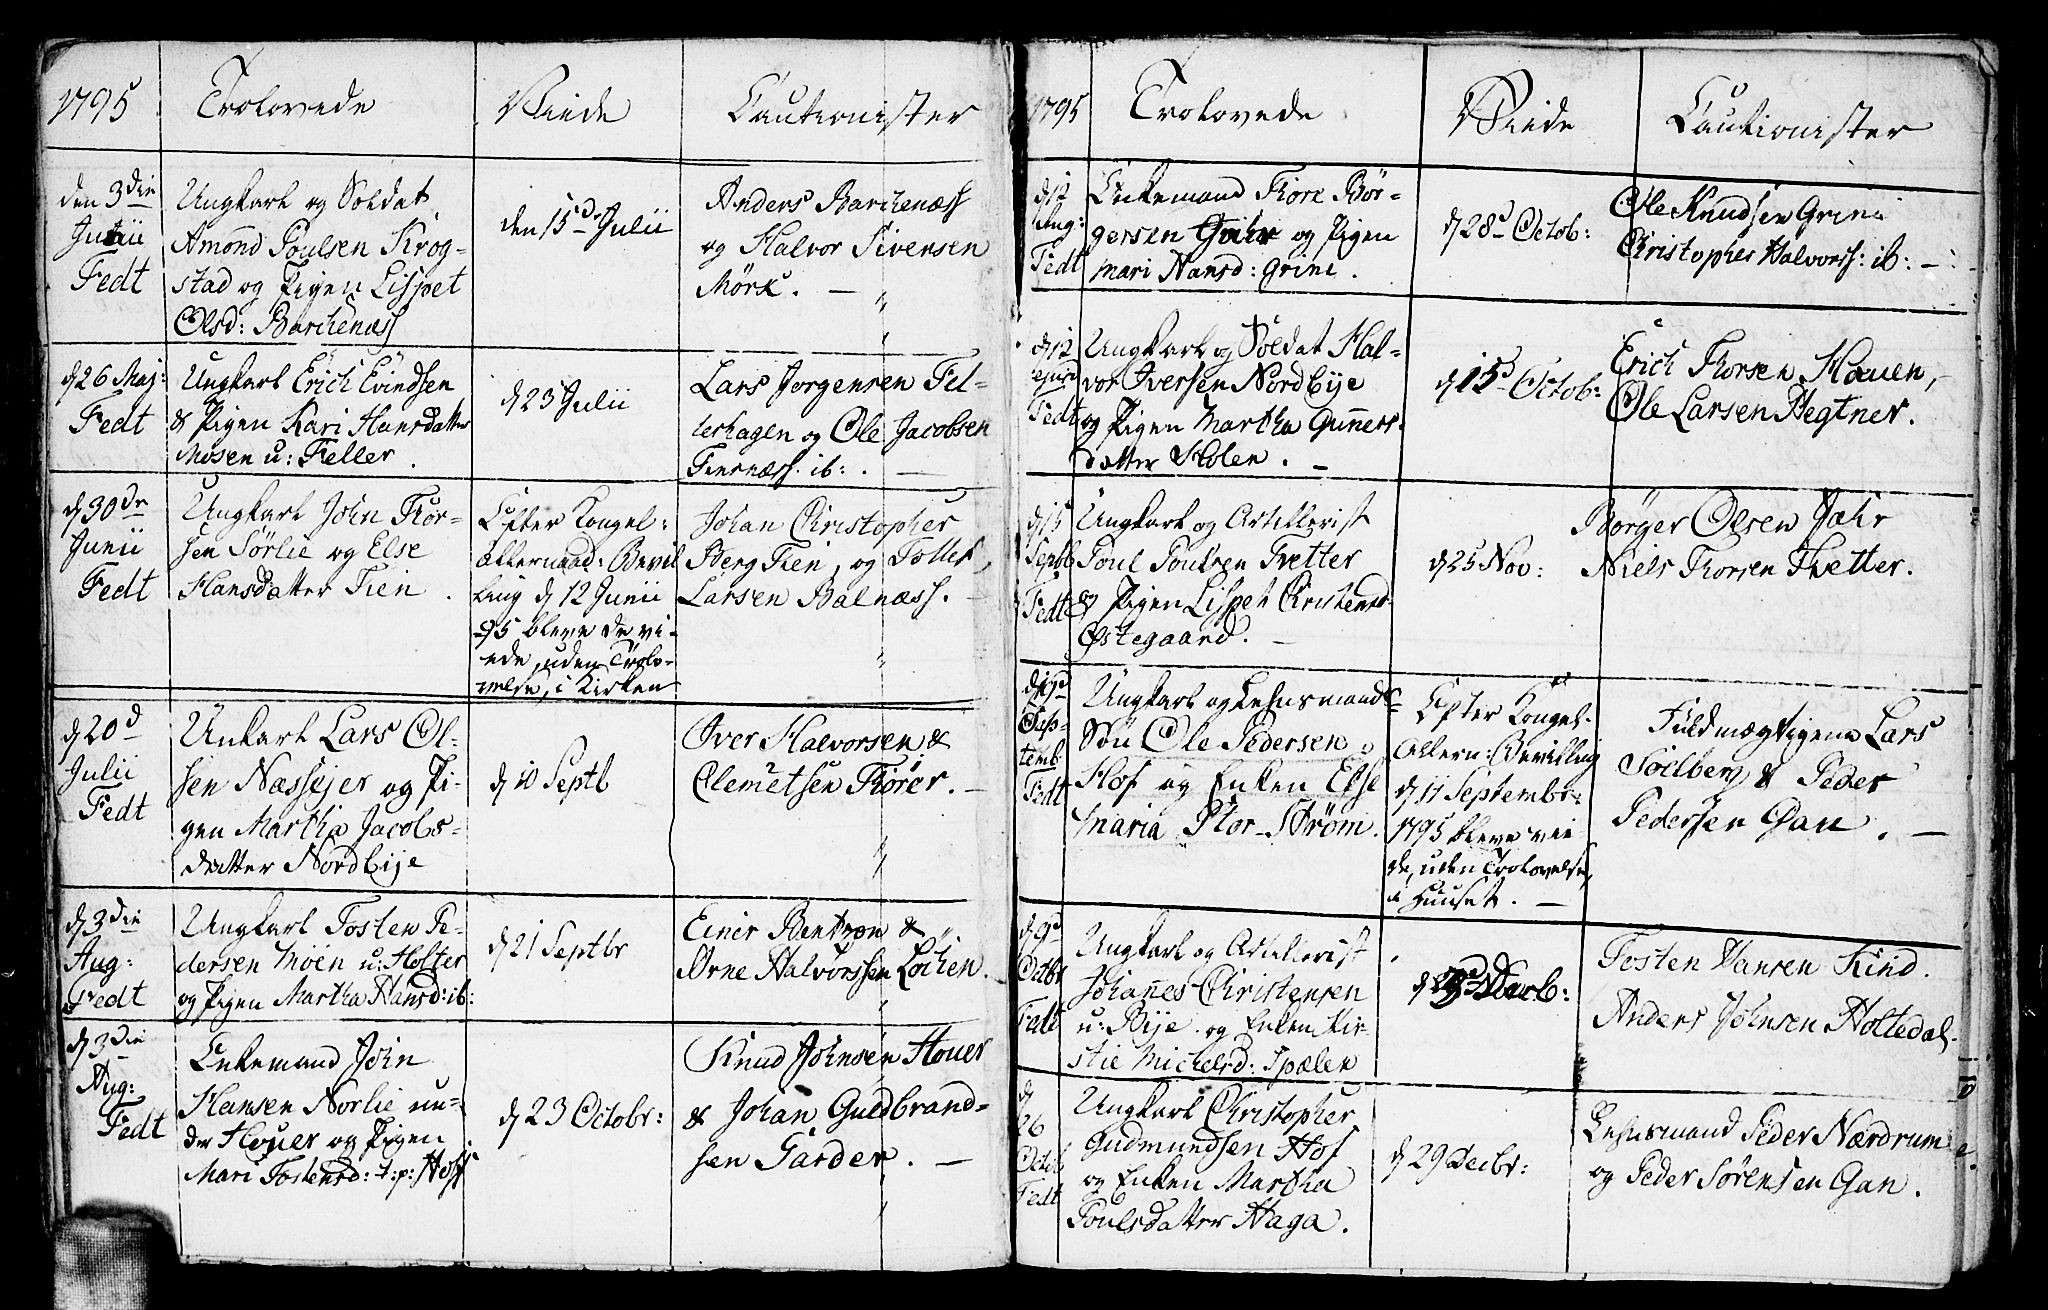 1795
Trolovede
Viede
Cautionister
den 3die
Junii
Fedt
Ungkarl og Soldat
Amond Poulsen Krog-
stad og Pigen Lispet
Olsd: Barchenæss
den 15de Julii
Anders Barchenæss
og Halvor Sivensen
Mörk. —
d 26 Maj:
Fedt
Ungkarl Erich Evindsen
& Pigen Kari Hansdatter
Mosen u: Feller.
d 23 Julii
Lars Jorgensen Fel-
lerhagen og Ole Jacobsen
ib: . —
d 30de
Junii
Fedt
Ungkarl John Thor-
sen Sørlie og Else
Hansdatter Tien.
Efter Kongel:
allernaad: Bevil
ling d 12 Junii
95 bleve de vi-
ede, uden Trolo-
velse, i Kirken
Johan Christopher
Berg Tien, og Tollef
Larsen Balnæss. —
d 20d
Julii
Fedt
Unkarl Lars Ol-
sen Nassejer og Pi-
gen Martha Jacobs-
datter Nordbye
d 10 Septb
Iver Halvorsen &
Clemetsen Thorer. —
d 3die
Aug:
Fedt
Ungkarl Tosten Pe-
dersen Moen u: Holter
og Pigen Martha Hansd: ib:
d 21 Septbr
Einer Bentzen &
Arne Halvorssen Löchen.
d 3die
Aug:
Fedt
Enkemand John
Hansen Norlie un-
der Houer og Pigen
Mari Tostensd: t: p: Hoff
d 23 Octobr:
Knud Johnsen Houer
& Johan Guldbrand-
sen Garder. —
1795
Trolovede
Viede
Cautionister
d 12
Aug:
Fedt
Enkemand Thore Bör-
gersen Jahr og Pigen
Mari Hansd: Grini.
d 28d Octob:
Ole Knudsen Grini
Christopher Halvorss: ib: —
d 12
Fedt
Ungkarl og Soldat Hal-
vor Iversen Nordbye
og Pigen Martha Guners-
datter Holen. —
d 15d Octob:
Erich Thorsen Houen, -
Ole Larsen Hegtner.
d 15
Septb
Fedt
Ungkarl og Artillerist
Poul Poulsen Tvetter
& Pigen Lispet Christensd
Østegaard. —
d 25 Nov:
Börger Olsen Jahr
Niels Thorsen Tvetter.
Sep-
temb
Fedt
Ungkarl og Lehnsmands
Sön Ole Pedersen
Hof og Enken Else
Maria Stor-Strøm.
Efter Kongel.
Allern: Bevilling
d 11 Septembr:
1795 bleve vie
de, uden Trolovelse,
i Huuset. —
Fuldmægtigene Lars
Soelberg & Peder
Pedersen Gan. —
d 9d
Octbr
Fedt
Ungkarl og Artillerist
Johanes Christensen
u: Bije og Enken Kir-
stie Michelsd: Spælen
Tosten Hansen Kind.
Anders Johnsen Holtedal.
d
26
Octob
Fedt
Ungkarl Christopher
Gudmundsen Hof
og Enken Martha
Poulsdatter Haga.
d 29 Decbr:
Lehnsmand Peder Nærdrum
og Peder Sörensen Gan.